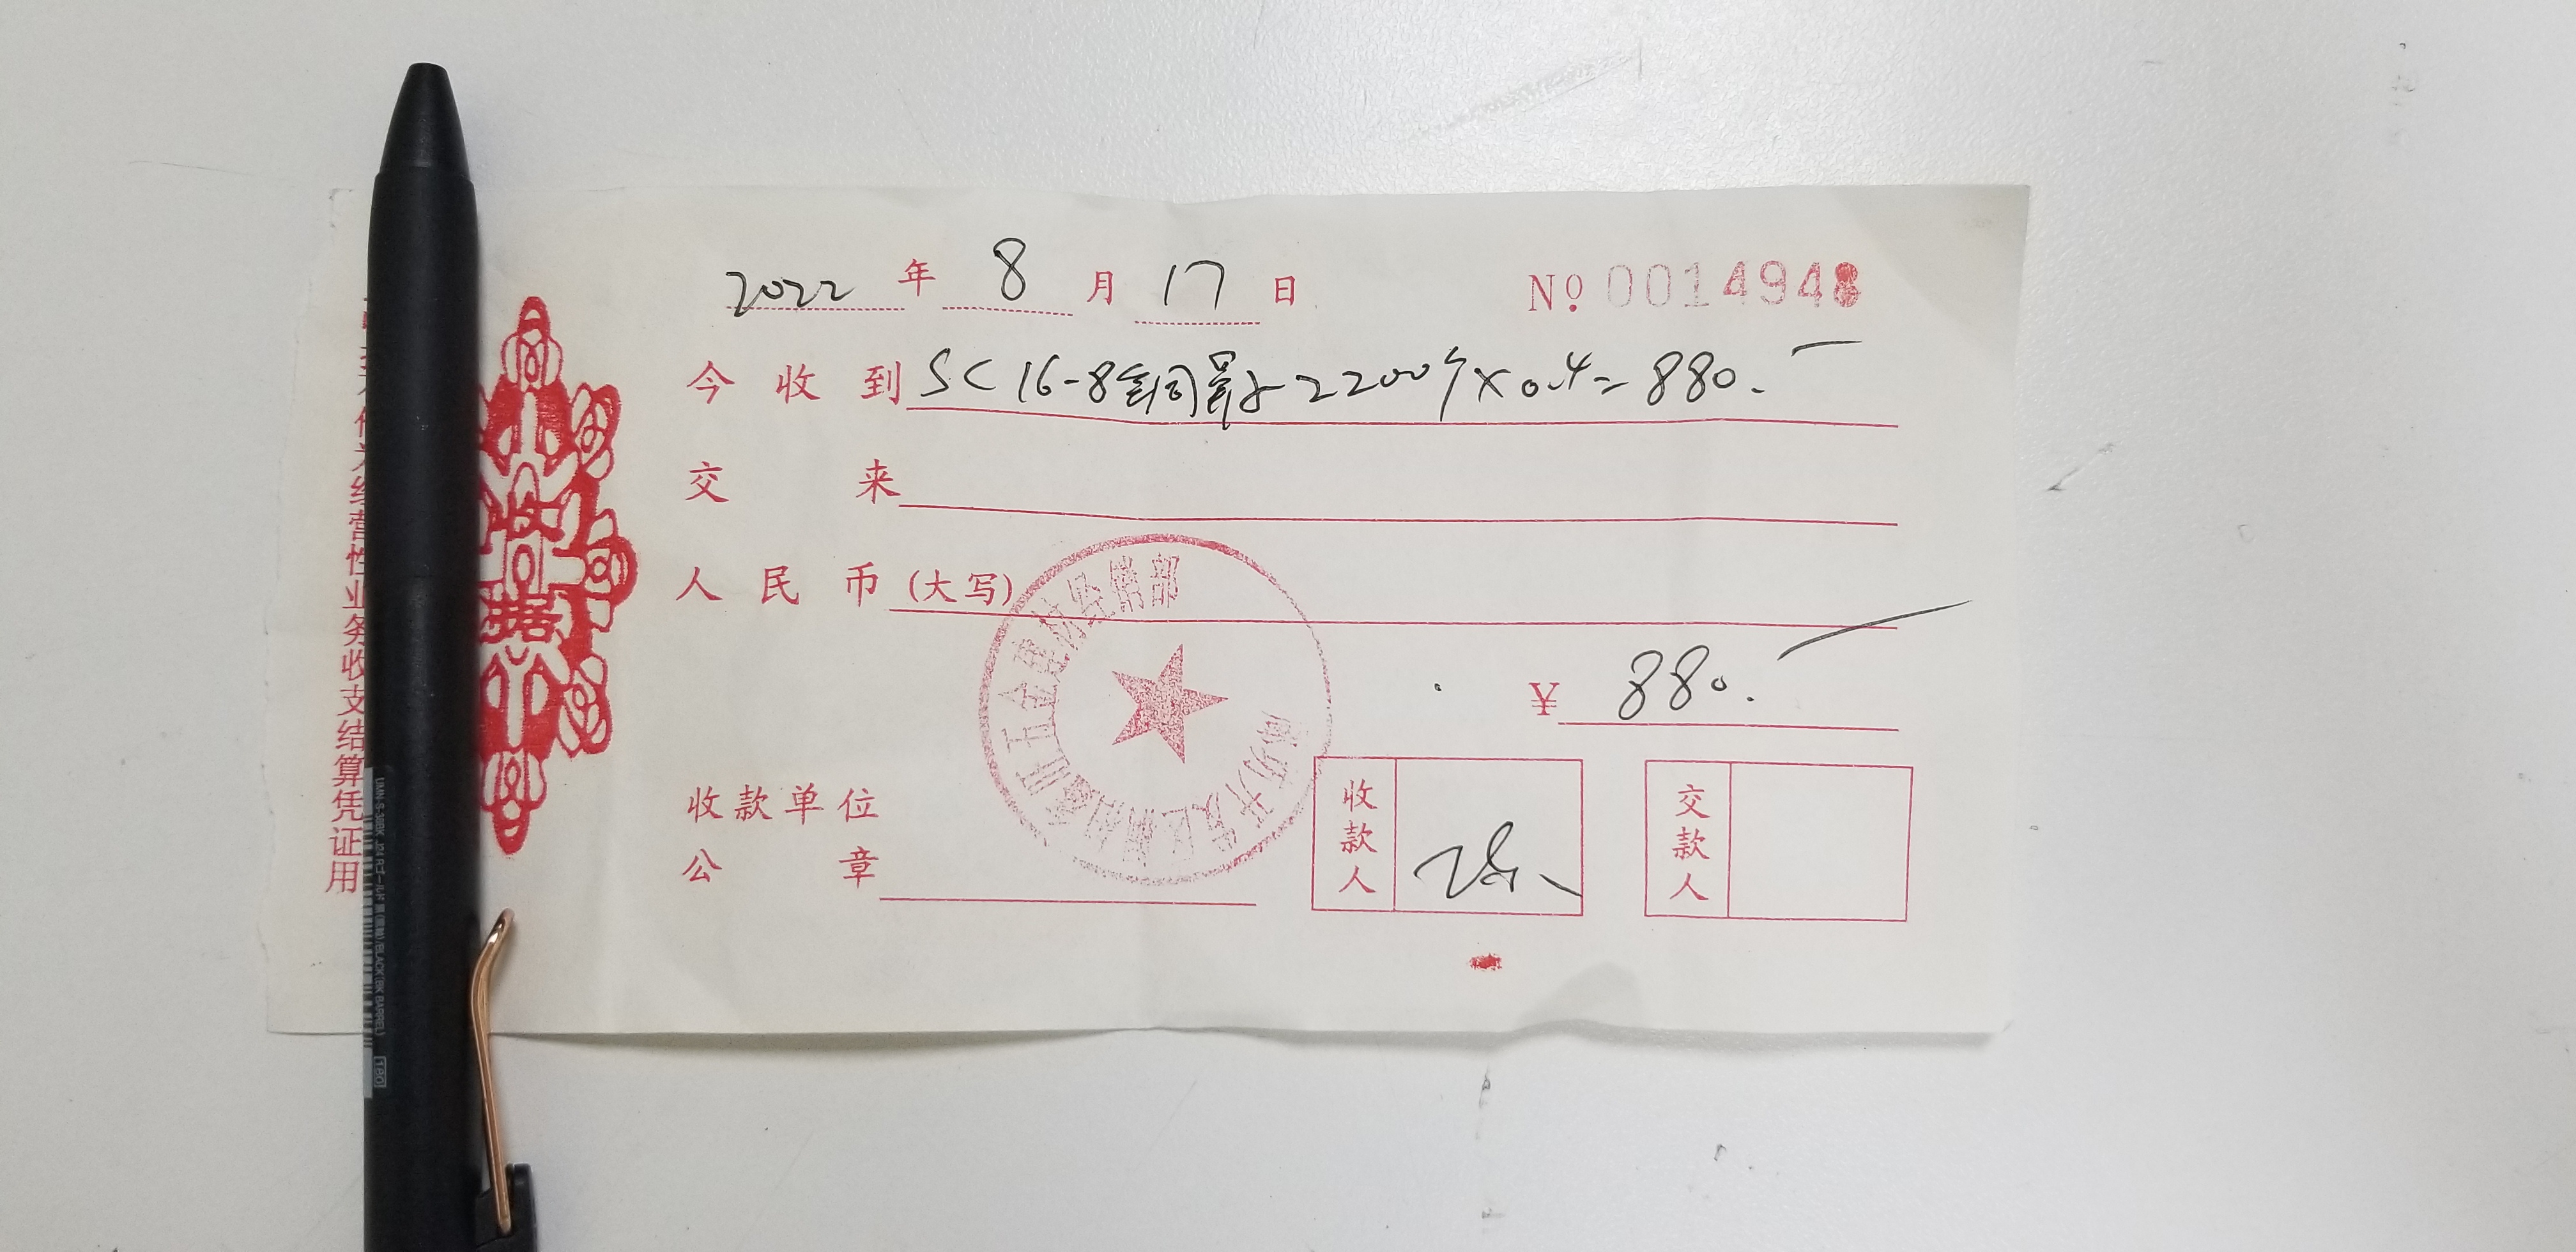 2022年8月17日 № 0014948
今收到 SC16-8铜鼻子2200个×0.4=880.
交来
人民币(大写)
¥ 880.
收款单位
公章
收款人
交款人
收据
作为经营性业务收支结算凭证用
五金建材经销部
UMN-S-38BK
BLACK(BK BARREL)